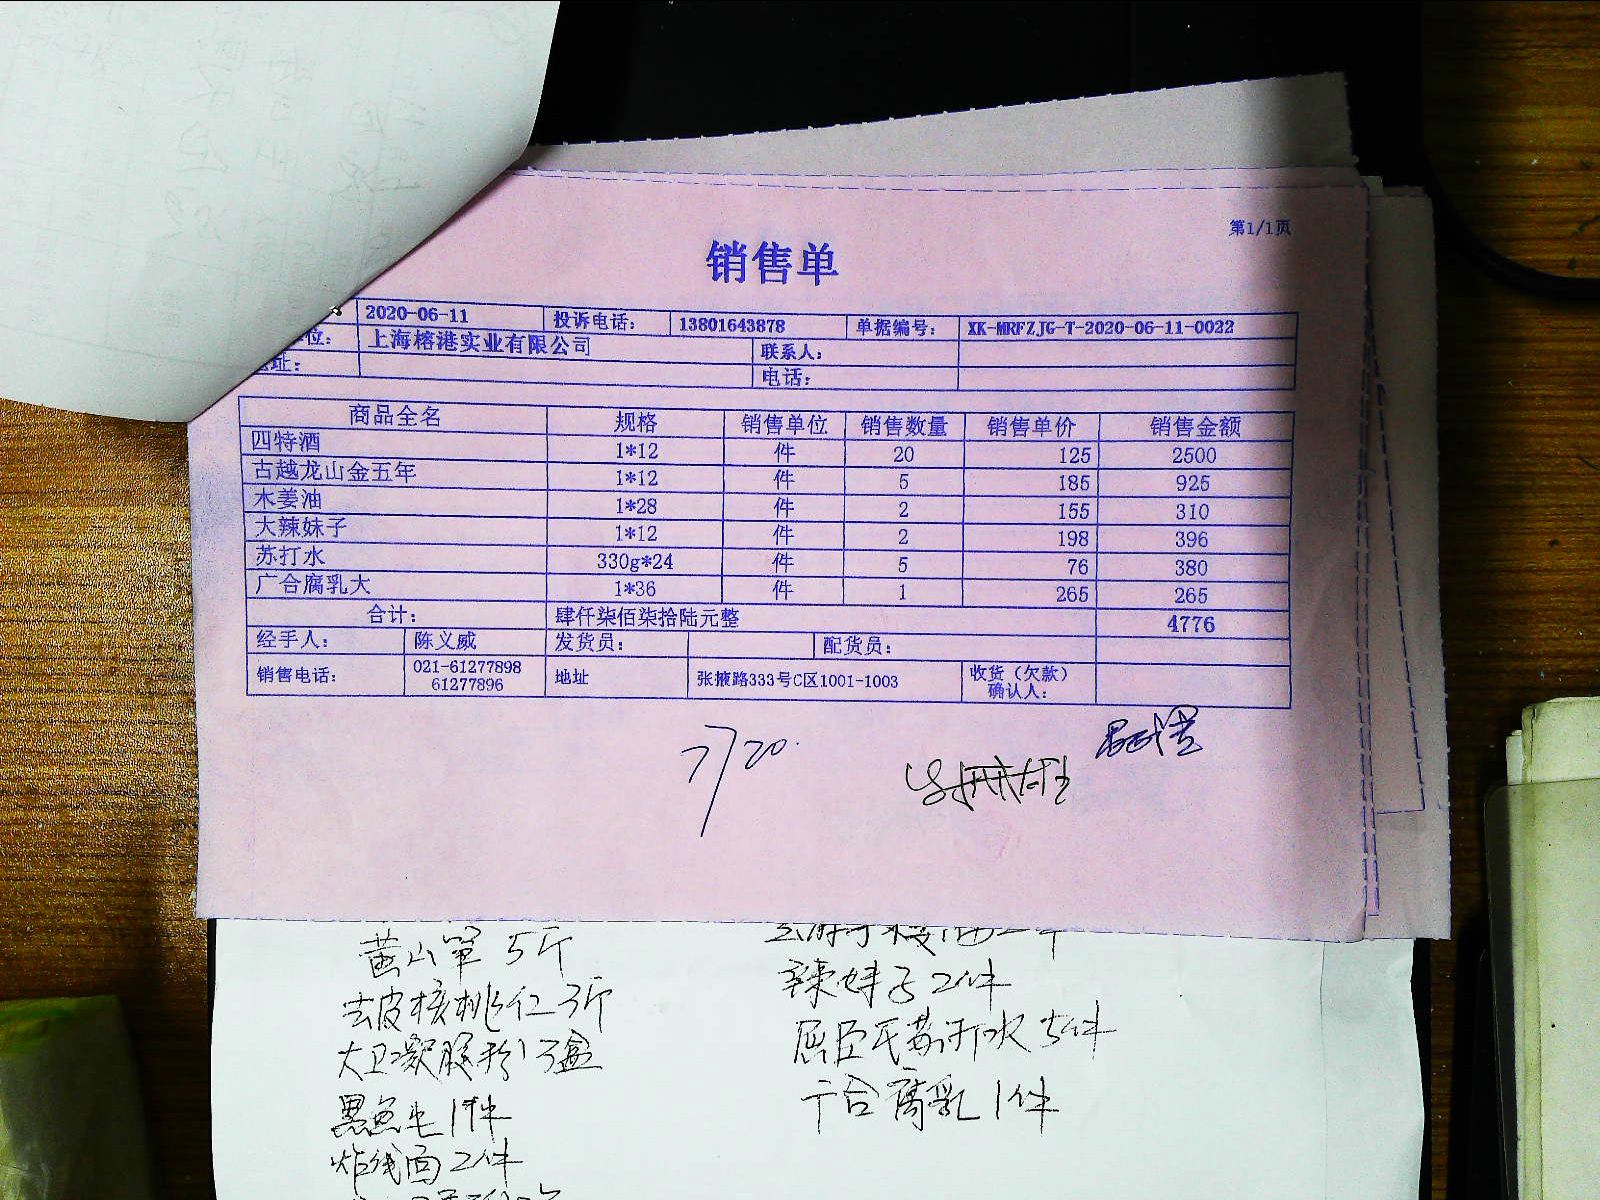 第1/1页
销售单
2020-06-11 投诉电话： 13801643878 单据编号： XK-MRFZJG-T-2020-06-11-0022
位： 上海榕港实业有限公司 联系人：
址： 电话：
商品全名 规格 销售单位 销售数量 销售单价 销售金额
四特酒 1*12 件 20 125 2500
古越龙山金五年 1*12 件 5 185 925
木姜油 1*28 件 2 155 310
大辣妹子 1*12 件 2 198 396
苏打水 330g*24 件 5 76 380
广合腐乳大 1*36 件 1 265 265
合计： 肆仟柒佰柒拾陆元整 4776
经手人： 陈义威 发货员： 配货员：
销售电话： 021-61277898 61277896 地址 张掖路333号C区1001-1003 收货（欠款）确认人：
7/20
黄山笋 5斤
去皮核桃仁 3斤
大卫凝脂粉 3盒
黑鱼 1件
炸线面 2件
辣妹子 2件
屈臣氏苏打水 5件
广合腐乳 1件